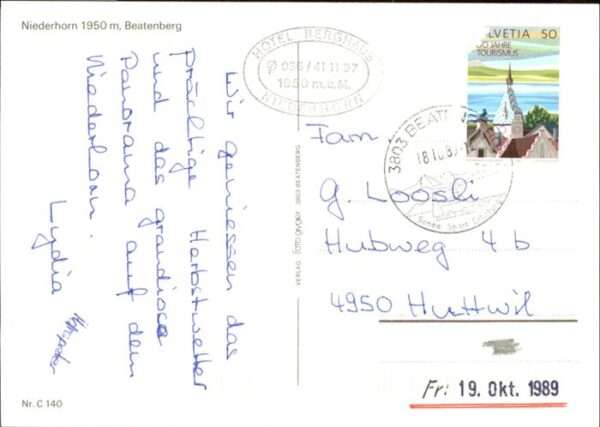 Niederhorn 1950 m, Beatenberg
Wir geniessen das
prächtige Herbstwetter
und das grandiose
Panorama auf dem
Niederhorn.
Lydia
Nr. C 140
HOTEL BERGHAUS
Ø 036/41 11 97
1950 m.ü.M.
NIEDERHORN
VERLAG FOTO GYGER 3803 BEATENBERG
HELVETIA 50
JAHRE
TOURISMUS
3803 BEATENBERG
18.10.89
Fam.
G. Loosli
Hubweg 4b
4950 Huttwil
Fr: 19. Okt. 1989